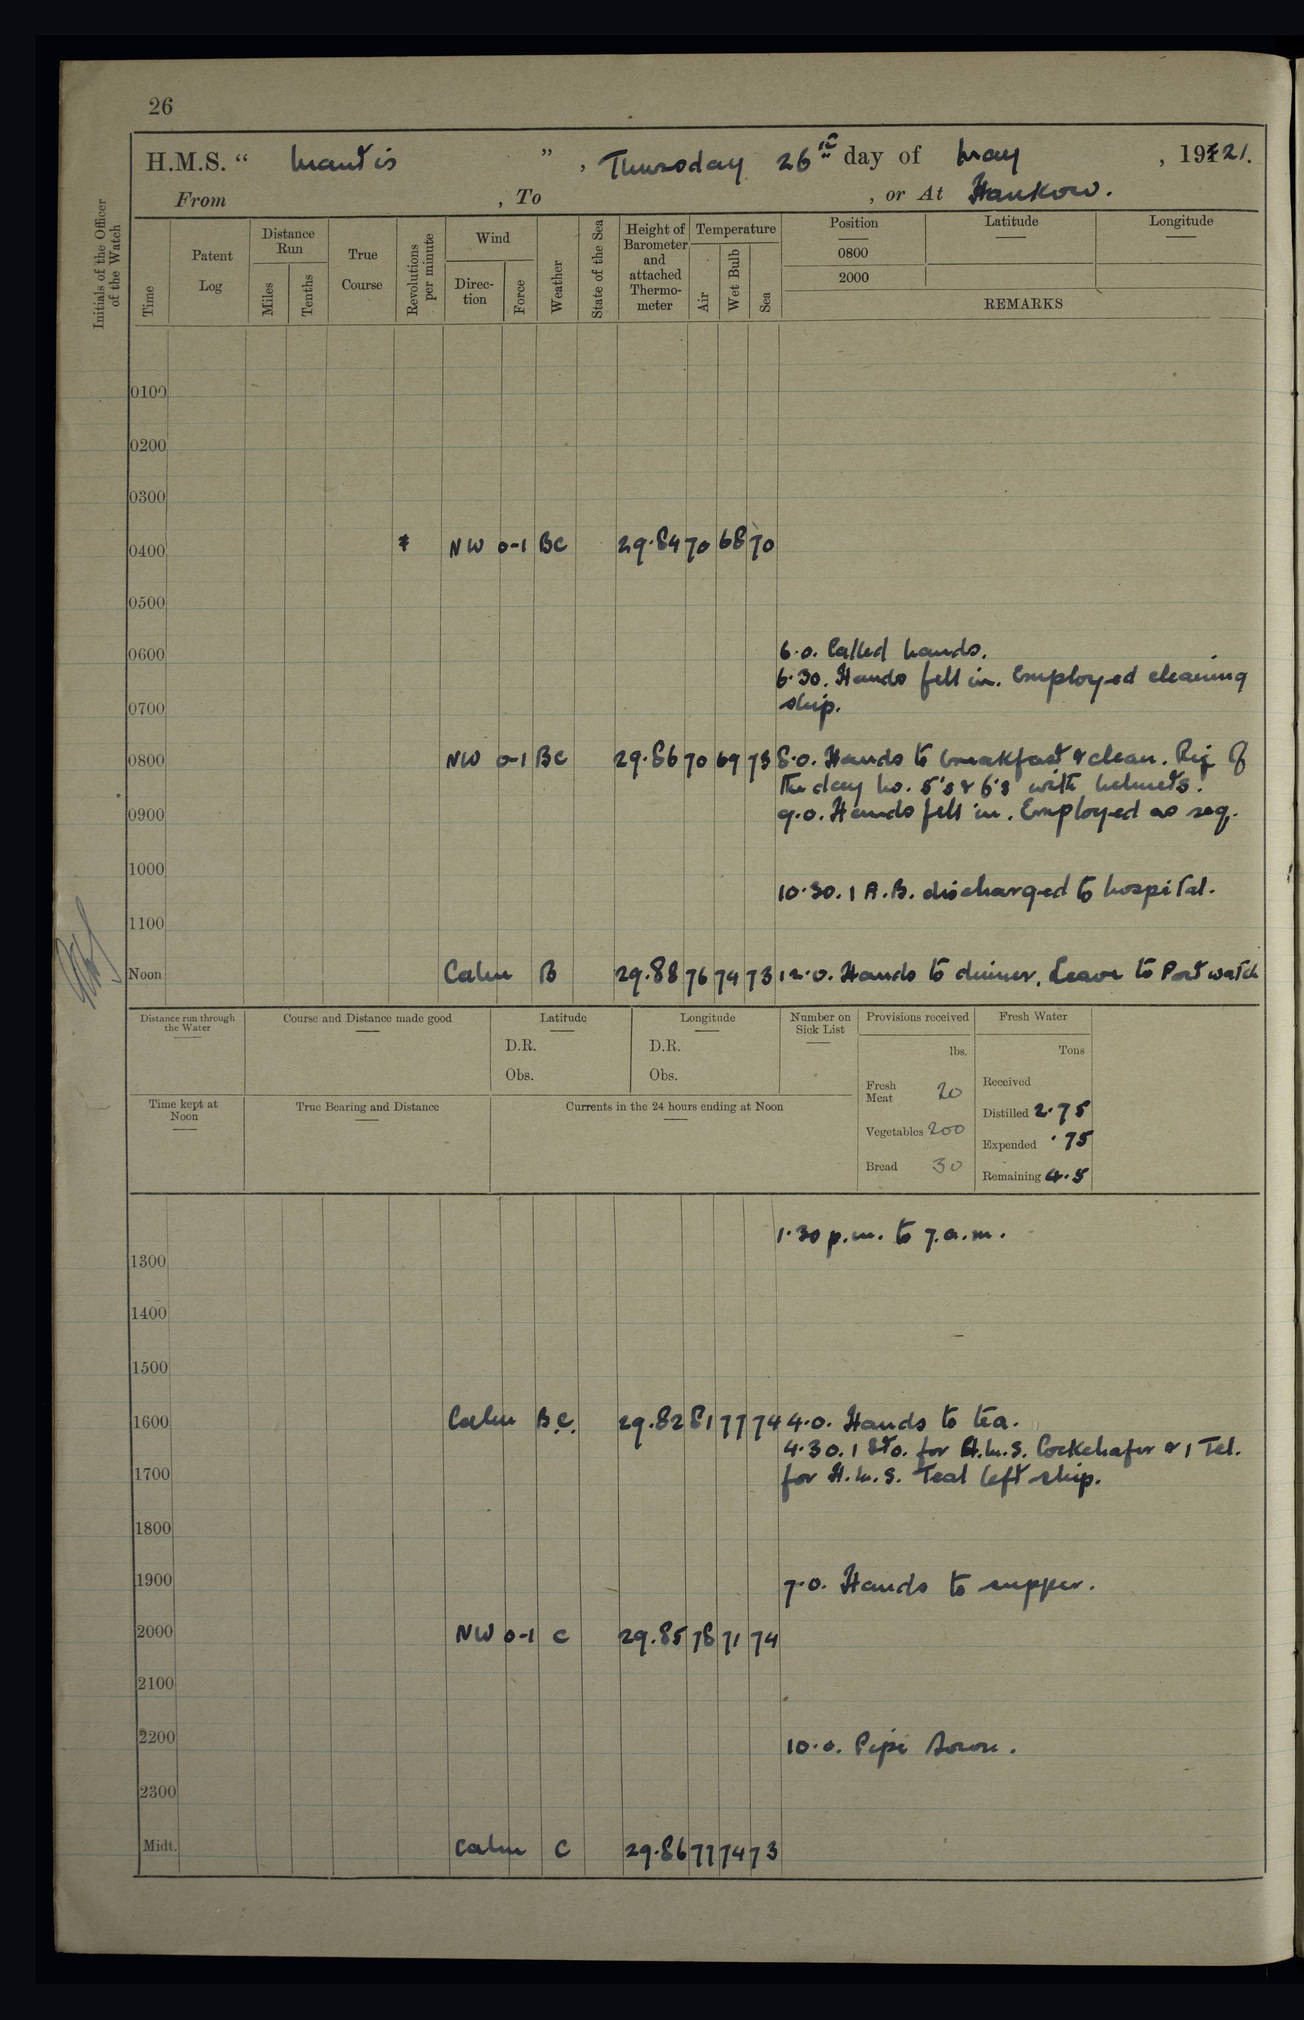 26
H.M.S. " Mantis " , Thursday 26th day of May , 1921.
From , To , or At Hankow.
Initials of the Officer of the Watch
Time
Patent Log
Distance Run
Miles
Tenths
True Course
Revolutions per minute
Wind
Direction
Force
Weather
State of the Sea
Height of Barometer and attached Thermometer
Temperature
Air
Wet Bulb
Sea
Position Latitude Longitude
0800
2000
REMARKS
0100
0200
0300
0400 * NW 0-1 BC 29.84 70 68 70
0500
0600 6.0. Called hands.
6.30. Hands fell in. Employed cleaning
0700 ship.
0800 NW 0-1 BC 29.86 70 69 73 8.0. Hands to breakfast & clean. Rig of
the day No. 5's & 6's with helmets.
0900 9.0. Hands fell in. Employed as req.
1000
10.30. 1 A.B. discharged to hospital.
1100
Noon Calm B 29.88 76 74 73 12.0. Hands to dinner. Leave to Port watch
Distance run through the Water
Course and Distance made good
Latitude
D.R.
Obs.
Longitude
D.R.
Obs.
Number on Sick List
Provisions received
lbs.
Fresh Meat 20
Vegetables 200
Bread 30
Fresh Water
Tons
Received
Distilled 2.75
Expended .75
Remaining 4.5
Time kept at Noon
True Bearing and Distance
Currents in the 24 hours ending at Noon
1.30 p.m. to 7.a.m.
1300
1400
1500
1600 Calm B.C. 29.82 81 77 74 4.0. Hands to tea.
4.30. 1 Sto. for H.M.S. Cockchafer & 1 Tel.
1700 for H.M.S. Teal left ship.
1800
1900 7.0. Hands to supper.
2000 NW 0-1 C 29.85 78 71 74
2100
2200 10.0. Pipe down.
2300
Midt. Calm C 29.86 77 74 73